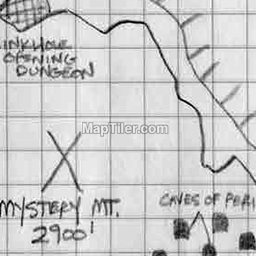 INKHOLE
OPENING
DUNGEON
MapTiler.com
MYSTERY MT.
2900'
CAVES OF PERI